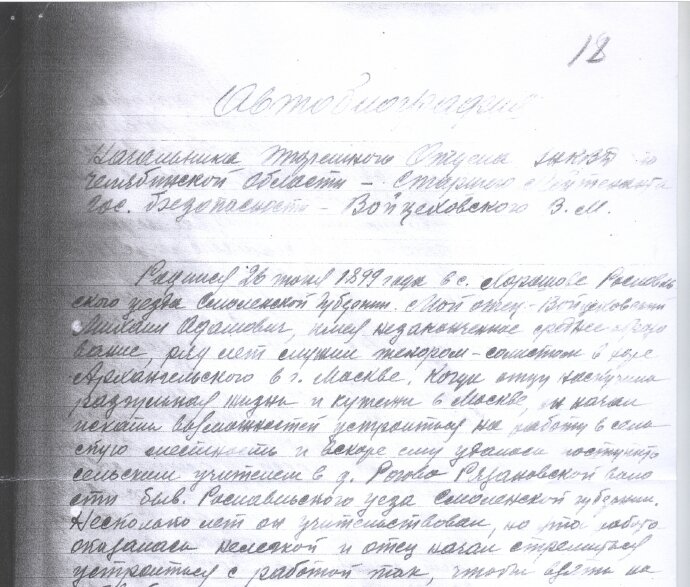 18
Автобиография
Начальника Тюремного Отдела НКВД по
Челябинской области – Старшего Лейтенанта
гос. безопасности – Войцеховского З. М.
Родился 26 июня 1899 года в с. Хорошове Рославль
ского уезда Смоленской губернии. Мой отец – Войцеховский
Михаил Адамович, имея незаконченное среднее образо
вание, ряд лет служил тенором-солистом в хоре
Архангельского в г. Москве. Когда отцу наскучила
разгульная жизнь и кутежи в Москве, он начал
искать возможностей устроиться на работу в сель
скую местность и вскоре ему удалось поступить
сельским учителем в д. Рогово Рязановской воло
сти быв. Рославльского уезда Смоленской губернии.
Несколько лет он учительствовал, но эта работа
оказалась нелегкой и отец начал стремиться
устроиться с работой так, чтобы